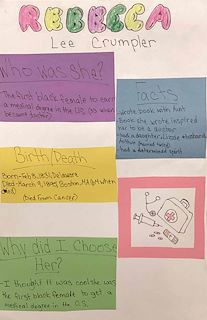 REBECCA
Lee Crumpler
Who was She?
The first black female to earn
a medical degree in the U.S.
became doctor
Facts
Wrote book with
Book she wrote inspired
her to be a doctor
had a determined spirit
Birth/Death
Born-Feb 8, 1831, Delaware
Died-March 9, 1895, Boston, MA
(Died From Cancer)
Why did I Choose
Her?
I thought it was cool she was
the first black female to get a
medical degree in the U.S.